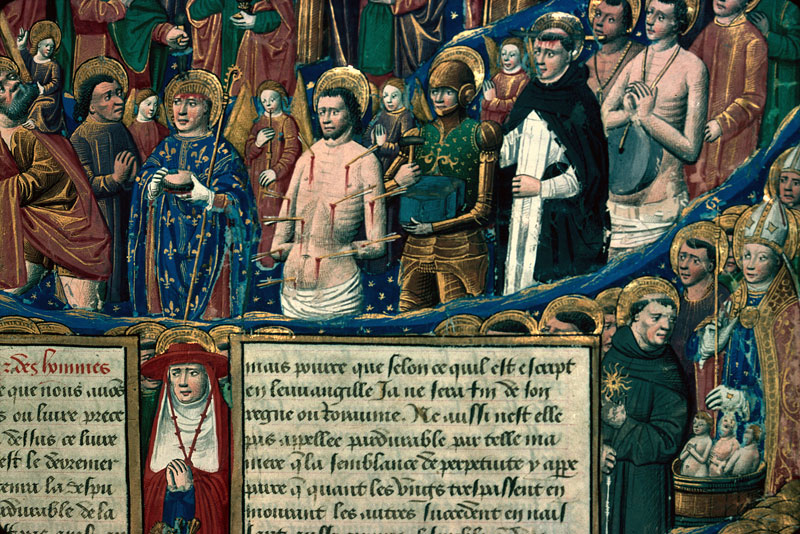 des hommes
que nous auõs
ou liure prece
dessus ce liure
est le derremer
la despu
durable de la

mais pource que selon ce quil est escript
en leuuangille Ja ne sera fin de son
regne ou Royaume. Ne aussi nest elle
pas appellee pardurable par telle ma
niere q̃ la semblance de perpetuite y appe
q̃ quant les vngs trespassent en
mourant les autres succedent en nais